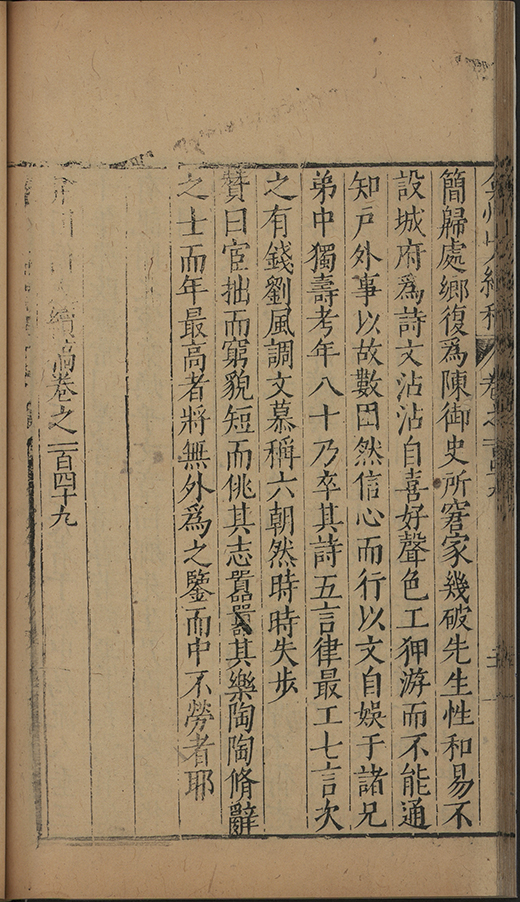 弇州山人續稿 卷之一百四十九
簡歸處鄉復爲陳御史所窘家幾破先生性和易不
設城府爲詩文沾沾自喜好聲色工狎游而不能通
知戶外事以故數困然信心而行以文自娛于諸兄
弟中獨壽考年八十乃卒其詩五言律最工七言次
之有錢劉風調文慕稱六朝然時時失步
贊曰宦拙而窮貌短而佻其志囂囂其樂陶陶脩辭
之士而年最高者將無外爲之鑒而中不勞者耶
弇州山人續稿卷之一百四十九